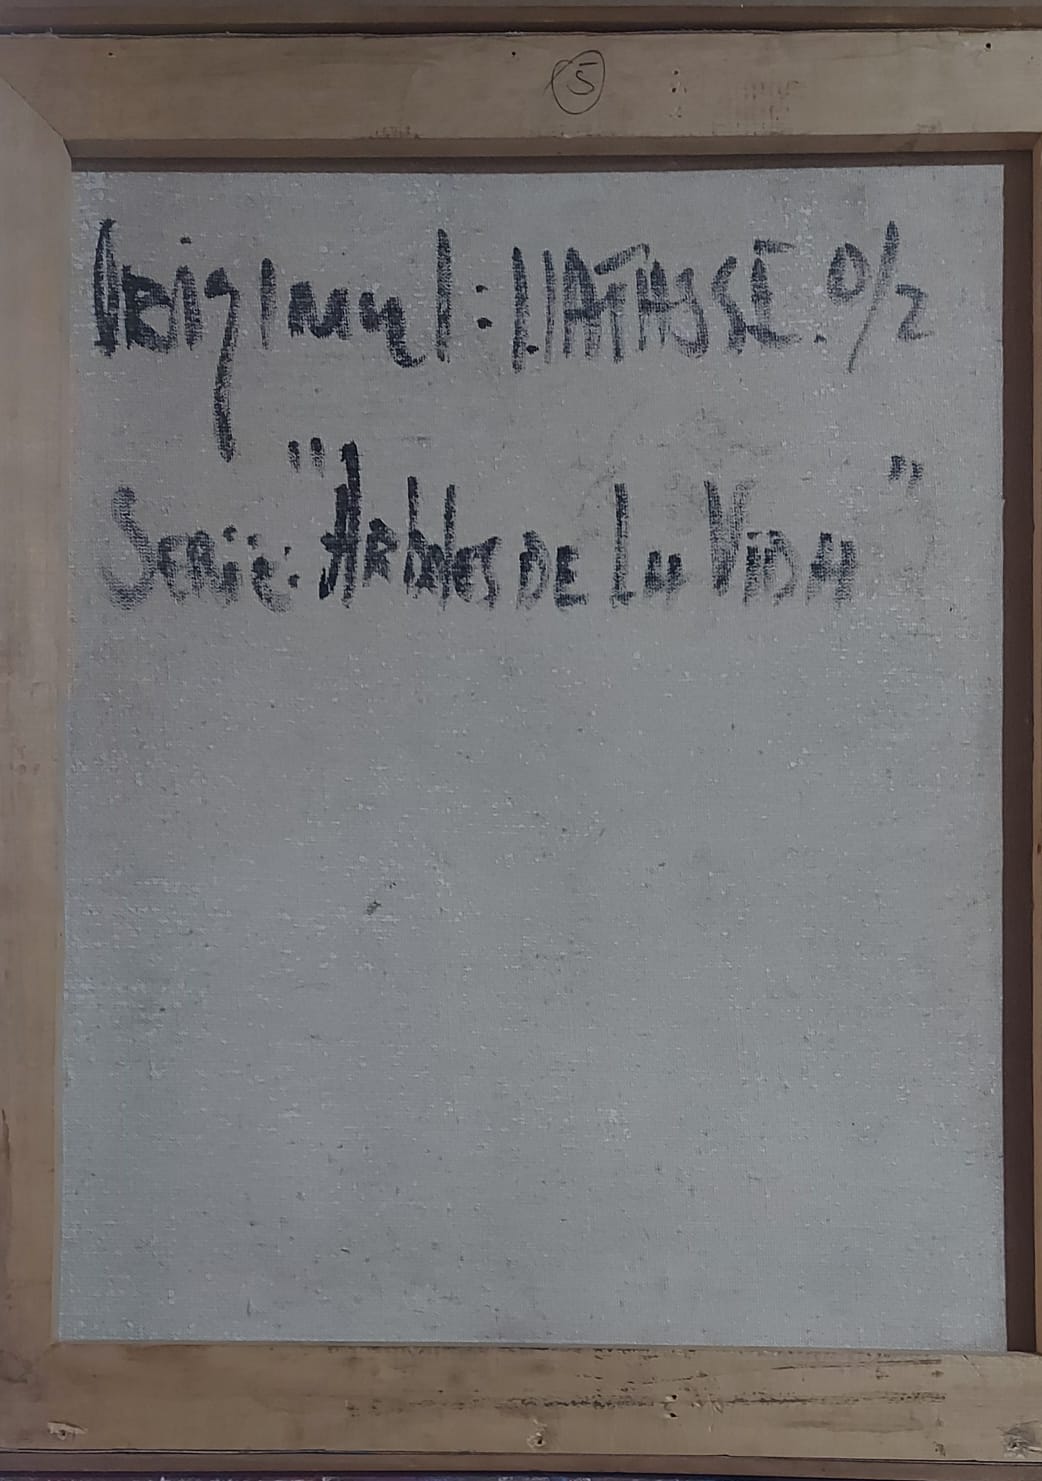 5
Original: MATASSÉ. 0/2
Serie: "Arboles DE La ViDA"